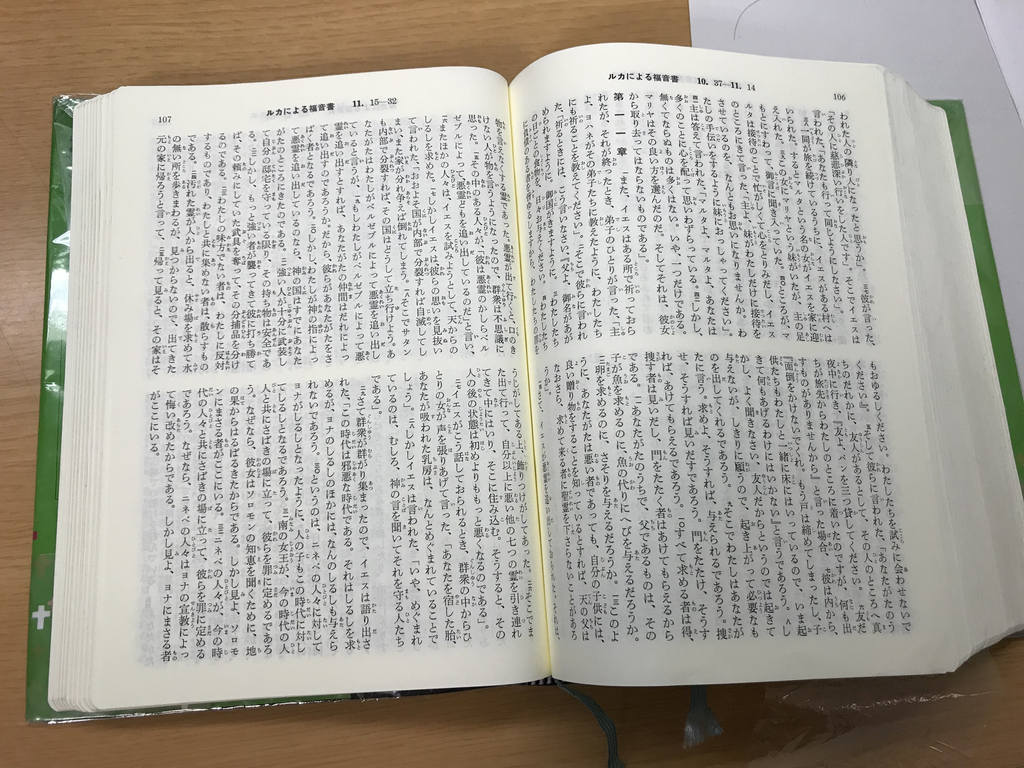 ルカによる福音書　10. 37—11. 14
106
われた人の隣り人になったと思うか」。三七彼が言った、
「その人に慈悲深い行いをした人です」。そこでイエスは
言われた、「あなたも行って同じようにしなさい」。
三八一同が旅を続けているうちに、イエスがある村へは
いられた。するとマルタという名の女がイエスを家に迎
え入れた。三九この女にマリヤという妹がいたが、主の足
もとにすわって、御言に聞き入っていた。四〇ところが、マ
ルタは接待のことで忙がしくて心をとりみだし、イエス
のところにきて言った、「主よ、妹がわたしだけに接待を
させているのを、なんともお思いになりませんか。わ
たしの手伝いをするように妹におっしゃってください」。
四一主は答えて言われた、「マルタよ、マルタよ、あなたは
多くのことに心を配って思いわずらっている。四二しかし、
無くてならぬものは多くはない。いや、一つだけである。
マリヤはその良い方を選んだのだ。そしてそれは、彼女
から取り去ってはならないものである」。
第一一章　一また、イエスはある所で祈っておら
れたが、それが終ったとき、弟子のひとりが言った、「主
よ、ヨハネがその弟子たちに教えたように、わたしたち
にも祈ることを教えてください」。二そこで彼らに言われ
た、「祈るときには、こう言いなさい、『父よ、御名があが
められますように。御国がきますように。三わたしたち
の日ごとの食物を、日々お与えください。四わたしたち
に負債のある者を皆ゆるしますから、わたしたちの罪を
もおゆるしください。わたしたちを試みに会わせないで
ください』」。五そして彼らに言われた、「あなたがたのう
ちのだれかに、友人があるとして、その人のところへ真
夜中に行き、『友よ、パンを三つ貸してください。六友だ
ちが旅先からわたしのところに着いたのですが、何も出
すものがありませんから』と言った場合、七彼は内から、
『面倒をかけないでくれ。もう戸は締めてしまったし、子
供たちもわたしと一緒に床にはいっているので、いま起
きて何もあげるわけにはいかない』と言うであろう。八し
かし、よく聞きなさい、友人だからというのでは起きて
与えないが、しきりに願うので、起き上がって必要なも
のを出してくれるであろう。九そこでわたしはあなたが
たに言う。求めよ、そうすれば、与えられるであろう。捜
せ、そうすれば見いだすであろう。門をたたけ、そうす
れば、あけてもらえるであろう。一〇すべて求める者は得、
捜す者は見いだし、門をたたく者はあけてもらえるから
である。一一あなたがたのうちで、父であるものは、その
子が魚を求めるのに、魚の代りにへびを与えるだろうか。
一二卵を求めるのに、さそりを与えるだろうか。一三このよ
うに、あなたがたは悪い者であっても、自分の子供には、
良い贈り物をすることを知っているとすれば、天の父は
なおさら、求めて来る者に聖霊を下さらないことがあろ
ルカによる福音書　11. 15—32
107
物を言えなくする霊であった。悪霊が出て行くと、口のき
けない人が物を言うようになったので、群衆は不思議に
思った。一五その中のある人々が、「彼は悪霊のかしらベル
ゼブルによって、悪霊どもを追い出しているのだ」と言い、
一六またほかの人々は、イエスを試みようとして、天からの
しるしを求めた。一七しかしイエスは、彼らの思いを見抜い
て言われた、「おおよそ国が内部で分裂すれば自滅してし
まい、また家が分れ争えば倒れてしまう。一八そこでサタン
も内部で分裂すれば、その国はどうして立ち行けよう。あ
なたがたはわたしがベルゼブルによって悪霊を追い出し
ていると言うが、一九もしわたしがベルゼブルによって悪
霊を追い出すとすれば、あなたがたの仲間はだれによっ
て追い出すのであろうか。だから、彼らがあなたがたをさ
ばく者となるであろう。二〇しかし、わたしが神の指によっ
て悪霊を追い出しているのなら、神の国はすでにあなた
がたのところにきたのである。二一強い人が十分に武装し
て自分の邸宅を守っている限り、その持ち物は安全であ
る。二二しかし、もっと強い者が襲ってきて彼に打ち勝て
ば、その頼みにしていた武具を奪って、その分捕品を分け
るのである。二三わたしの味方でない者は、わたしに反対
するものであり、わたしと共に集めない者は、散らすもの
である。二四汚れた霊が人から出ると、休み場を求めて水
の無い所を歩きまわるが、見つからないので、出てきた
元の家に帰ろうと言って、二五帰って見ると、その家はそ
うじがしてある上、飾りつけがしてあった。二六そこでま
た出て行って、自分以上に悪い他の七つの霊を引き連れ
てきて中にはいり、そこに住み込む。そうすると、その
人の後の状態は初めよりももっと悪くなるのである」。
二七イエスがこう話しておられるとき、群衆の中からひ
とりの女が声を張りあげて言った、「あなたを宿した胎、
あなたが吸われた乳房は、なんとめぐまれていることで
しょう」。二八しかしイエスは言われた、「いや、めぐまれ
ているのは、むしろ、神の言を聞いてそれを守る人たち
である」。
二九さて群衆が群がり集まったので、イエスは語り出さ
れた、「この時代は邪悪な時代である。それはしるしを求
めるが、ヨナのしるしのほかには、なんのしるしも与えら
れないであろう。三〇というのは、ニネベの人々に対して
ヨナがしるしとなったように、人の子もこの時代に対し
てしるしとなるであろう。三一南の女王が、今の時代の人々
と共にさばきの場に立って、彼らを罪に定めるであろ
う。なぜなら、彼女はソロモンの知恵を聞くために、地
の果からはるばるきたからである。しかし見よ、ソロモ
ンにまさる者がここにいる。三二ニネベの人々が、今の時
代の人々と共にさばきの場に立って、彼らを罪に定める
であろう。なぜなら、ニネベの人々はヨナの宣教によっ
て悔い改めたからである。しかし見よ、ヨナにまさる者
がここにいる。